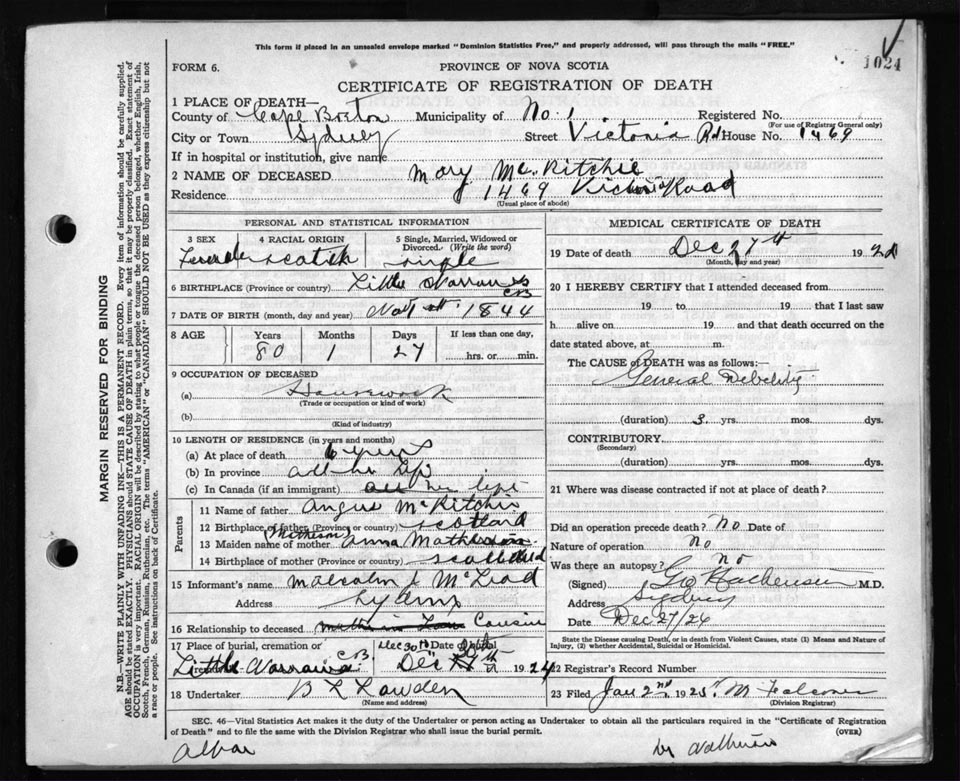 This form if placed in an unsealed envelope marked "Dominion Statistics Free," and properly addressed, will pass through the mails "FREE."
1024
FORM 6.
PROVINCE OF NOVA SCOTIA
CERTIFICATE OF REGISTRATION OF DEATH
1 PLACE OF DEATH—
County of Cape Breton Municipality of No. 1 Registered No.
(For use of Registrar General only)
City or Town Sydney Street Victoria Rd House No. 1469
If in hospital or institution, give name
2 NAME OF DECEASED Mary McRitchie
Residence 1469 Victoria Road
(Usual place of abode)
PERSONAL AND STATISTICAL INFORMATION
3 SEX Female
4 RACIAL ORIGIN Scotch
5 Single, Married, Widowed or Divorced. (Write the word) single
6 BIRTHPLACE (Province or country) Little Narrows CB
7 DATE OF BIRTH (month, day and year) 1844
8 AGE Years Months Days If less than one day,
80 1 27 hrs. or min.
9 OCCUPATION OF DECEASED
(a) Housework
(Trade or occupation or kind of work)
(b)
(Kind of industry)
10 LENGTH OF RESIDENCE (in years and months)
(a) At place of death 6 years
(b) In province all her life
(c) In Canada (if an immigrant) all her life
Parents
11 Name of father Angus McRitchie
12 Birthplace of father (Province or country) Scotland
13 Maiden name of mother Anna Matheson
14 Birthplace of mother (Province or country) Scotland
15 Informant's name Malcolm McLeod
Address Sydney
16 Relationship to deceased Cousin
17 Place of burial, cremation or Date of burial
Little Narrows CB Dec 30th 1924
18 Undertaker B L Lowden
(Name and address)
MEDICAL CERTIFICATE OF DEATH
19 Date of death Dec 27th 192
(Month, day and year)
20 I HEREBY CERTIFY that I attended deceased from
19 to 19 that I last saw
h alive on 19 and that death occurred on the
date stated above, at m.
The CAUSE of DEATH was as follows:—
General Debility
(duration) 3 yrs. mos. dys.
CONTRIBUTORY
(Secondary)
(duration) yrs. mos. dys.
21 Where was disease contracted if not at place of death?
Did an operation precede death? No Date of
Nature of operation no
Was there an autopsy? No
(Signed) M.D.
Address Sydney
Date Dec 27/24
State the Disease causing Death, or in death from Violent Causes, state (1) Means and Nature of Injury, (2) whether Accidental, Suicidal or Homicidal.
22 Registrar's Record Number
23 Filed Jan 2nd 1925 M Falconer
(Division Registrar)
SEC. 46—Vital Statistics Act makes it the duty of the Undertaker or person acting as Undertaker to obtain all the particulars required in the "Certificate of Registration
of Death" and to file the same with the Division Registrar who shall issue the burial permit.
(OVER)
MARGIN RESERVED FOR BINDING
N.B.—WRITE PLAINLY WITH UNFADING INK—THIS IS A PERMANENT RECORD. Every item of information should be carefully supplied.
AGE should be stated EXACTLY. PHYSICIANS should STATE CAUSE OF DEATH in plain terms, so that it may be properly classified. Exact statement of
OCCUPATION is very important. RACIAL ORIGIN will be described by stating to what people or tongue the deceased person belonged, whether English, Irish,
Scotch, French, German, Russian, Ruthenian, etc. The terms "AMERICAN" or "CANADIAN" SHOULD NOT BE USED as they express citizenship but not
a race or people. See instructions on back of Certificate.